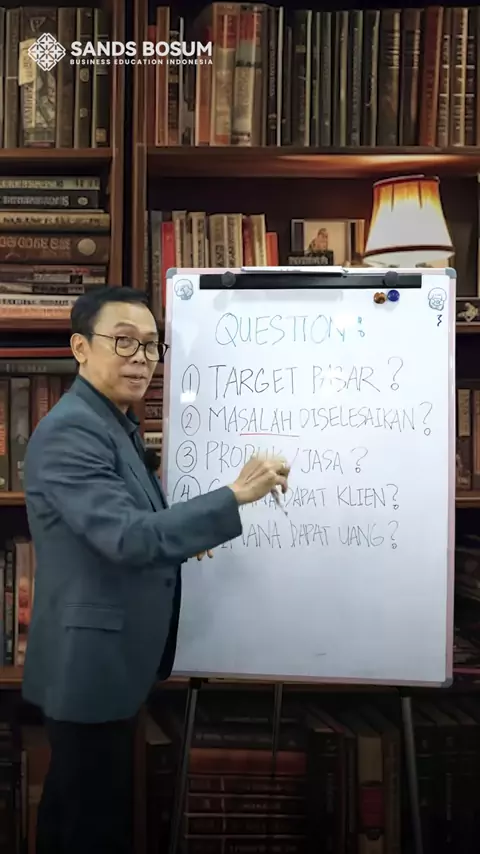 SANDS BOSUM
BUSINESS EDUCATION INDONESIA
QUESTION :
1 TARGET PASAR ?
2 MASALAH DISELESAIKAN ?
3 PRODUK/JASA ?
4 DAPAT KLIEN ?
DAPAT UANG ?